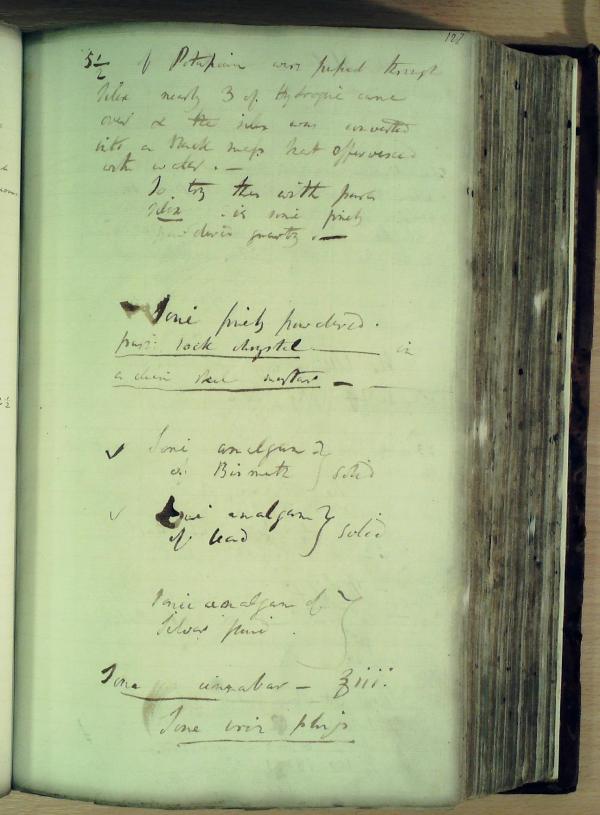 127
5 1/2 of Potassium were passed through
Silex nearly 3 of Hydrogene came
over & the silex was converted
into a black mass that effervesced
with water. —
To try this with pure
silex . ie some finely
powdered quartz. —
Some finely powdered.
pure rock chrystal ——— in
a clean steel mortar —
✓ Some amalgam }
of Bismuth } solid
✓ Some amalgam }
of lead } solid
Some amalgam of }
Silver fluid .
Some cinnabar — ʒiii.
Some iron